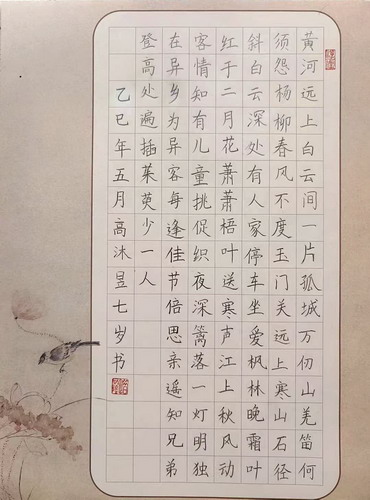 黄河远上白云间一片孤城万仞山羌笛何
须怨杨柳春风不度玉门关远上寒山石径
斜白云深处有人家停车坐爱枫林晚霜叶
红于二月花萧萧梧叶送寒声江上秋风动
客情知有儿童挑促织夜深篱落一灯明独
在异乡为异客每逢佳节倍思亲遥知兄弟
登高处遍插茱萸少一人
乙巳年五月高沐昱七岁书